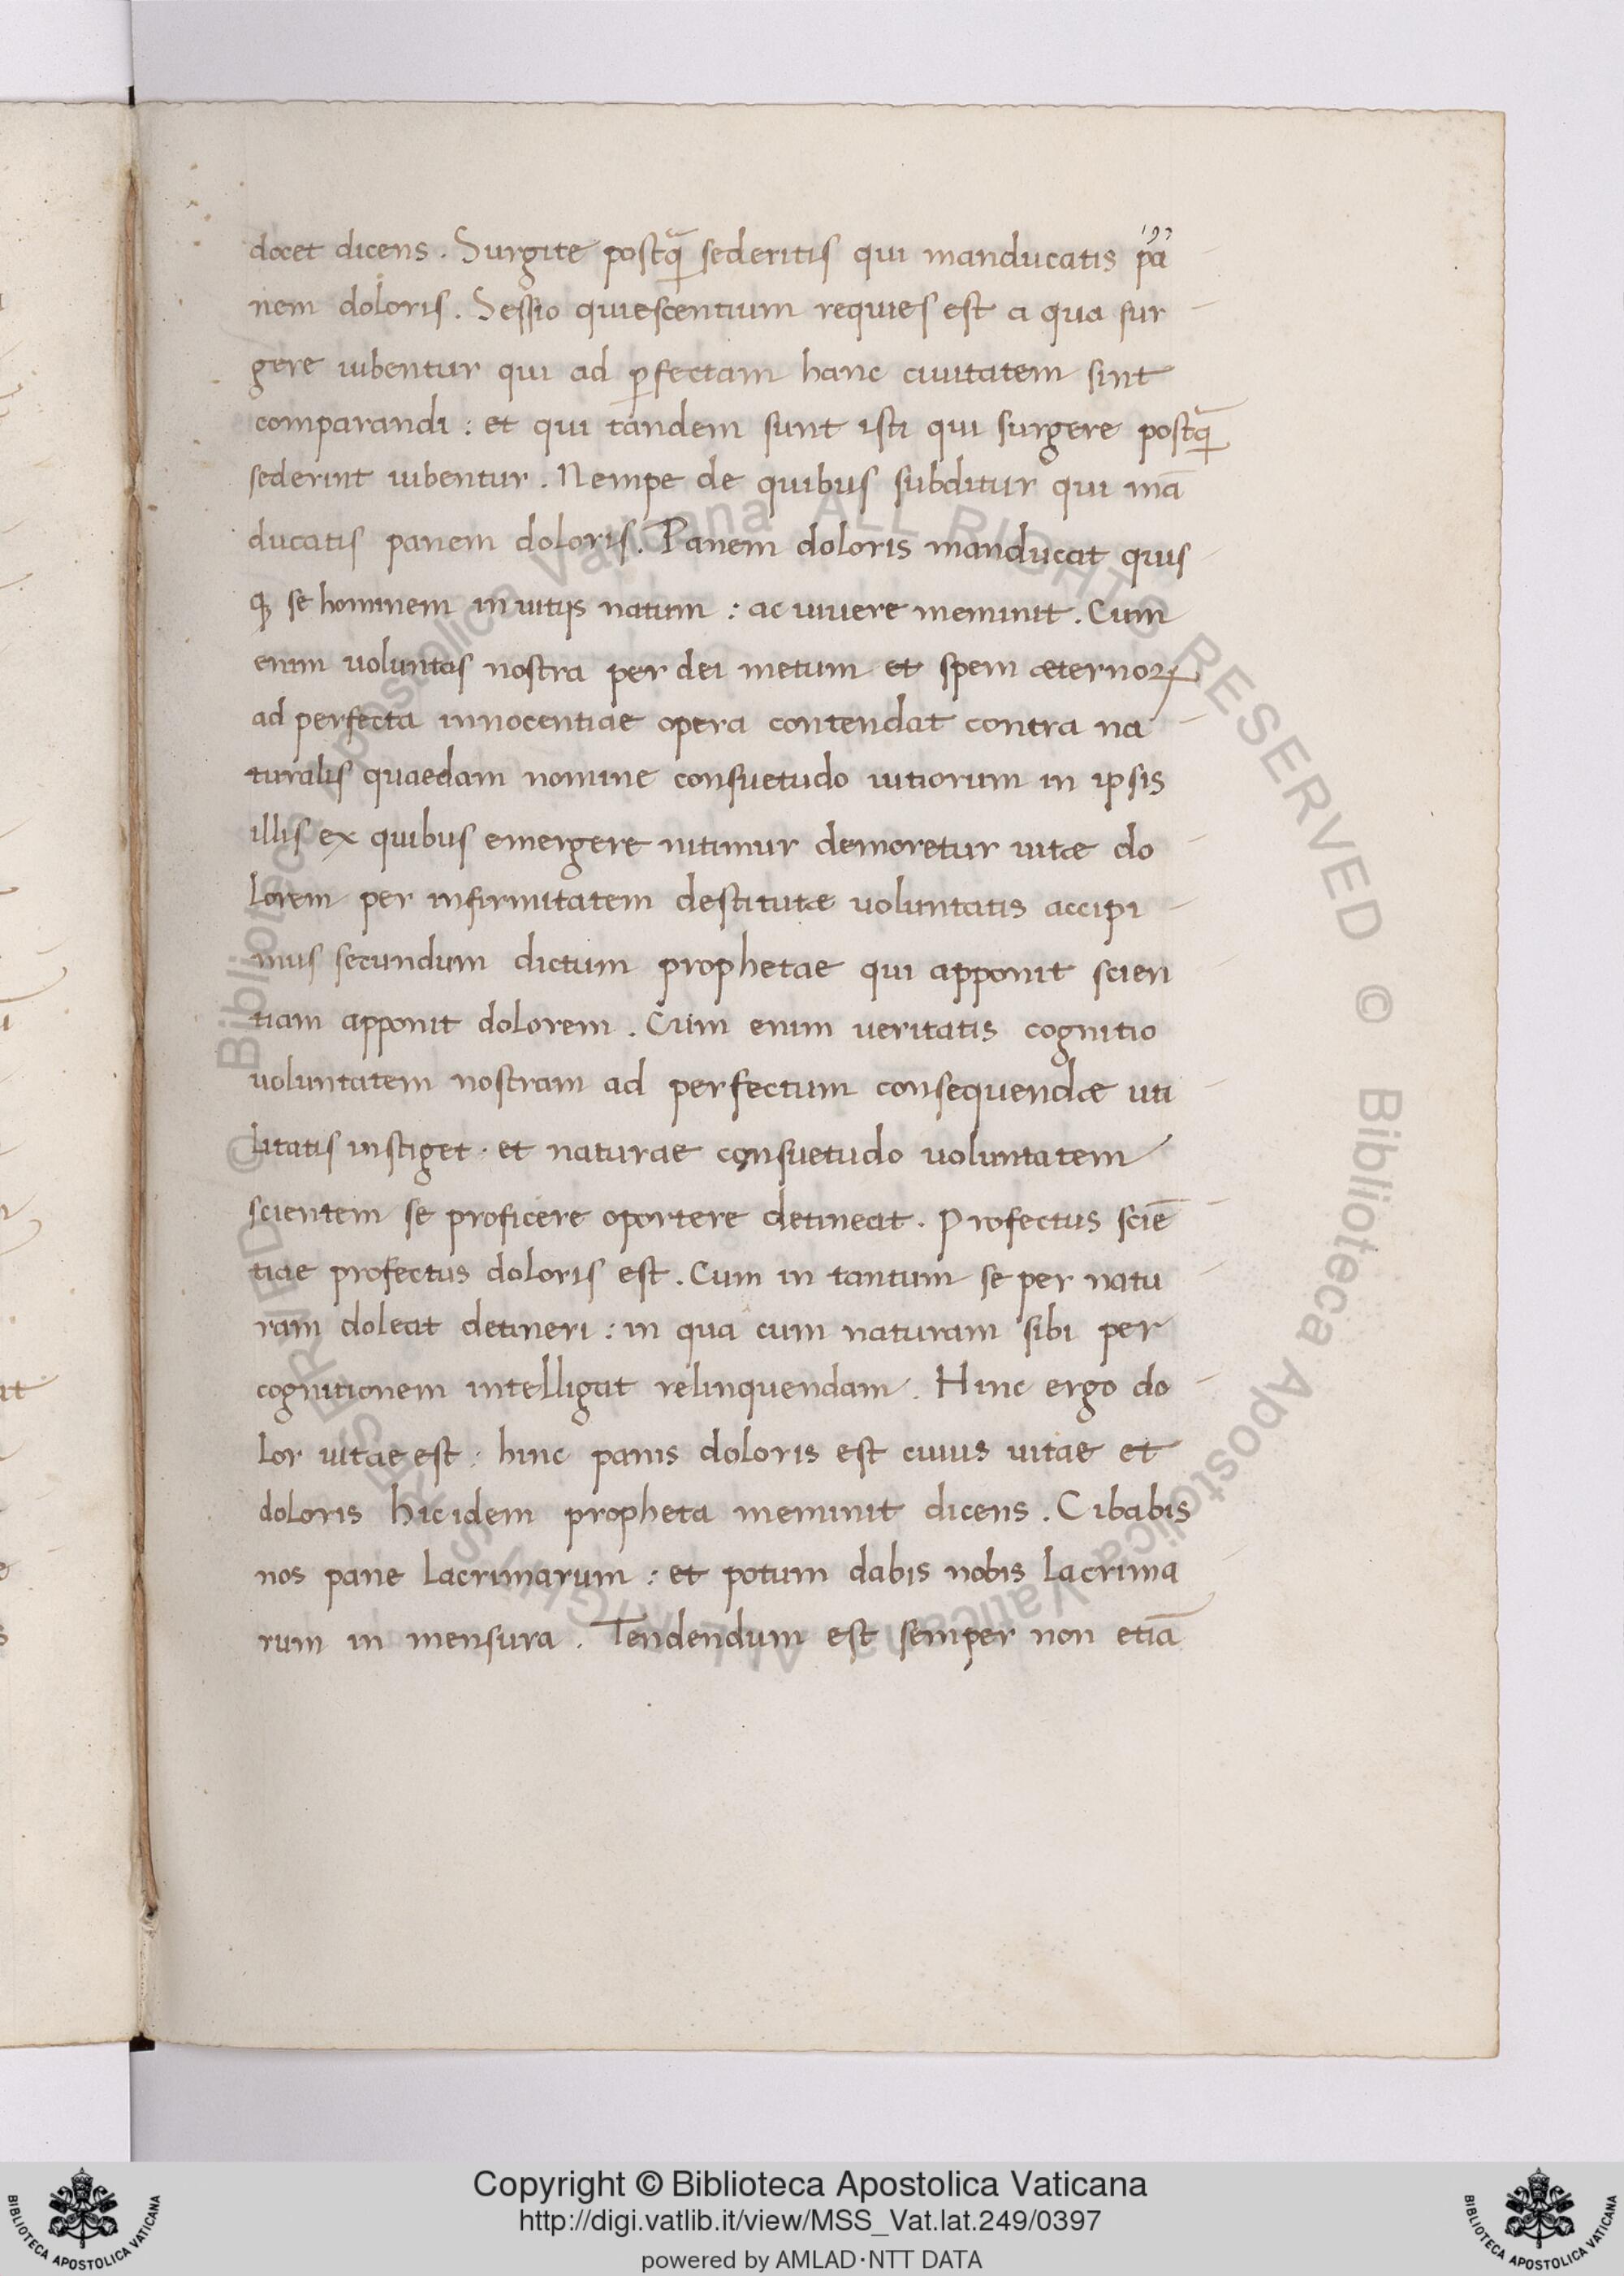 193
docet dicens. Surgite postq̃ sederitis qui manducatis pa
nem doloris. Sessio quiescentium requies est a qua sur
gere iubentur qui ad ꝑfectam hanc ciuitatem sint
comparandi: et qui tandem sunt isti qui surgere postq̃
sederint iubentur. Nempe de quibus subditur qui mā
ducatis panem doloris. Panem doloris manducat quis
qꝫ se hominem in uitijs natum: ac uiuere meminit. Cum
enim uoluntas nostra per dei metum et spem æternoꝝ
ad perfecta innocentiae opera contendat contra na
turalis quaedam nomine consuetudo uitiorum in ipsis
illis ex quibus emergere nitimur demoretur uitæ do
lorem per infirmitatem destitutæ uoluntatis accipi
mus secundum dictum prophetae qui apponit scien
tiam apponit dolorem. Cum enim ueritatis cognitio
uoluntatem nostram ad perfectum consequendæ uti
litatis instiget. et naturae consuetudo uoluntatem
scientem se proficere oportere detineat. Profectus sciē
tiae profectus doloris est. Cum in tantum se per natu
ram doleat detineri: in qua cum naturam sibi per
cognitionem intelligat relinquendam. Hinc ergo do
lor uitae est: hinc panis doloris est cuius uitae et
doloris hic idem propheta meminit dicens. Cibabis
nos pane lacrimarum: et potum dabis nobis lacrima
rum in mensura. Tendendum est semper non etiā
© Biblioteca Apostolica Vaticana ALL RIGHTS RESERVED © Biblioteca Apostolica Vaticana ALL RIGHTS RESERVED
Copyright © Biblioteca Apostolica Vaticana
http://digi.vatlib.it/view/MSS_Vat.lat.249/0397
powered by AMLAD·NTT DATA
BIBLIOTECA APOSTOLICA VATICANA
BIBLIOTECA APOSTOLICA VATICANA